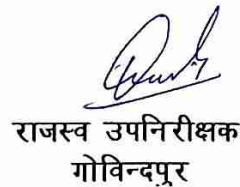 राजस्व उपनिरीक्षक
गोविन्दपुर